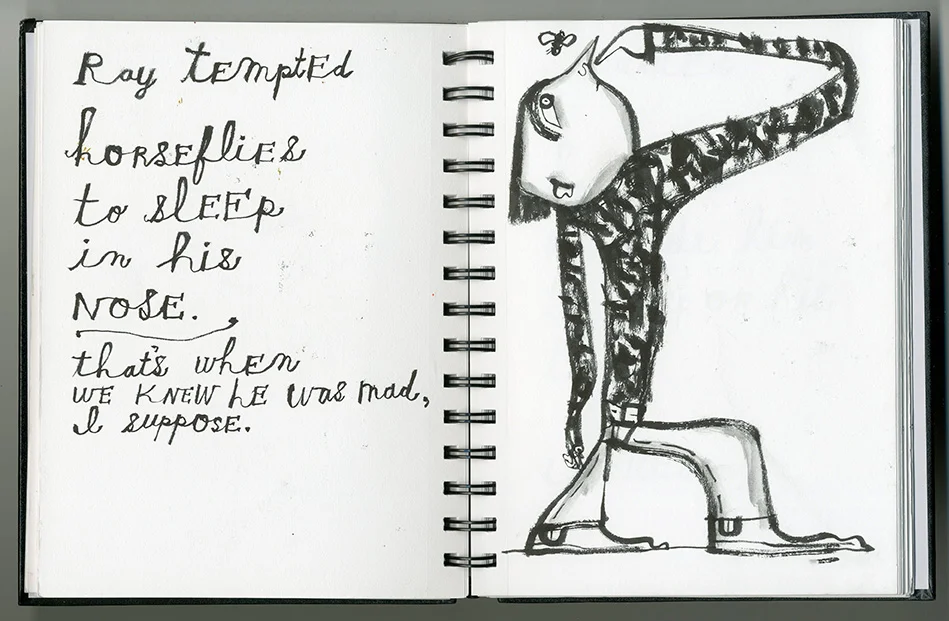 Ray tempted
horseflies
to sleep
in his
nose.
that's when
we knew he was mad,
I suppose.